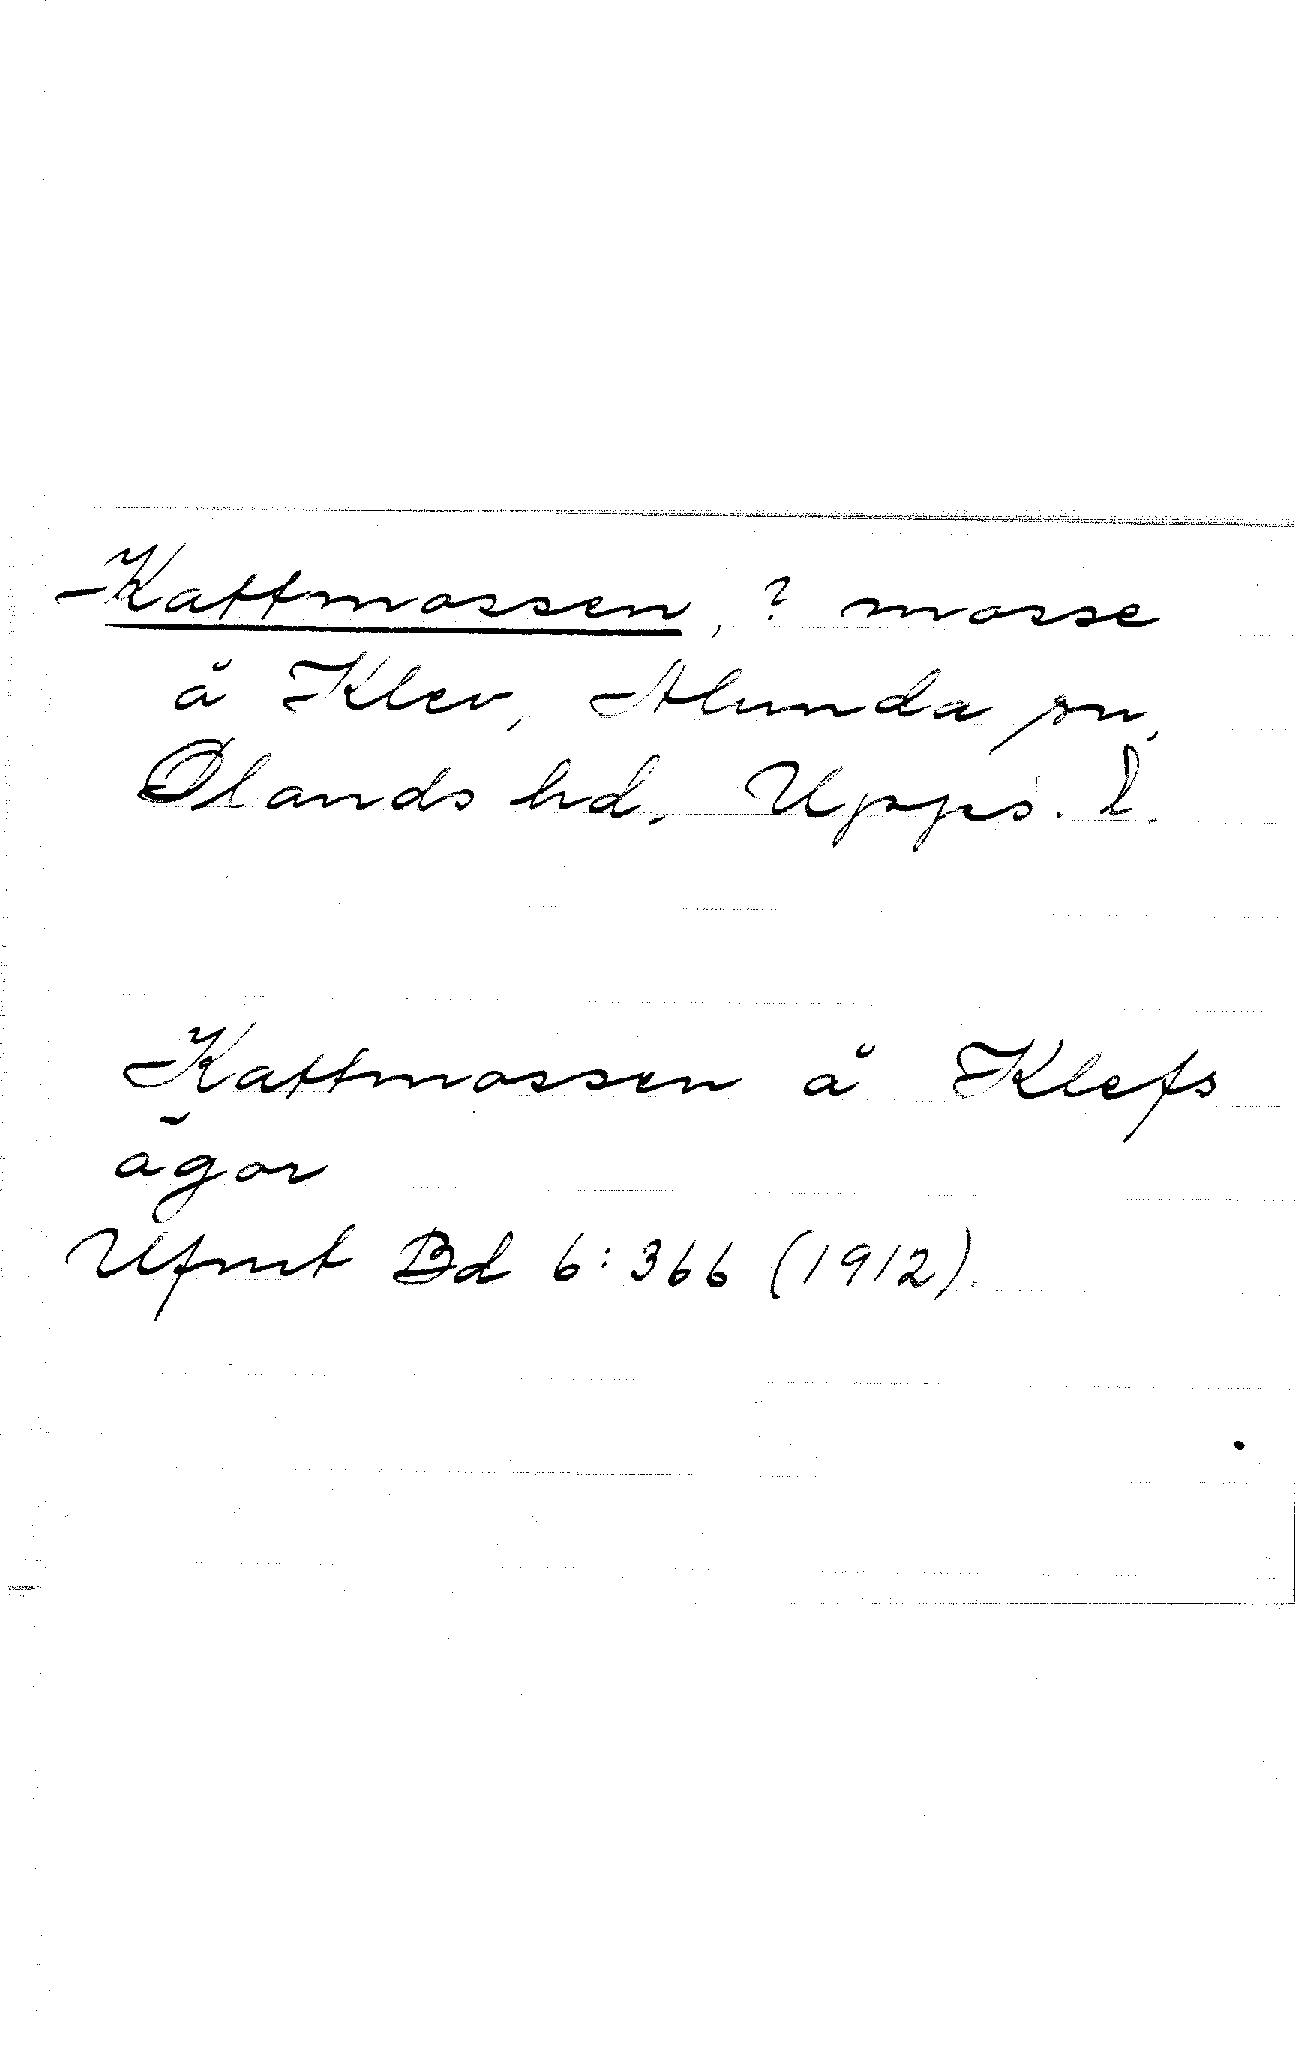 Kattmossen, ? mosse
å Klev, Alunda sn,
Olands hd. Upps. l.
Kattmossen å Klefs
ägor
Ufmt Bd 6:366 (1912).